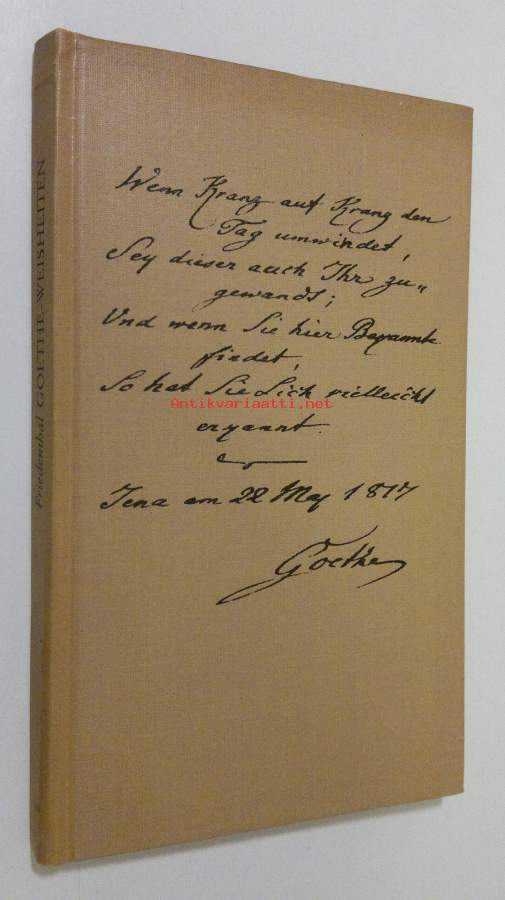 Wenn Kranz auf Kranz den
Tag umwindet,
Sey dieser auch Ihr zu„
gewandt;
Und wenn Sie hier Bekannte
findet,
So hat Sie Sich vielleicht
erkannt.
Jena am 22 May 1817
Goethe
Friedenthal GOETHE-WEISHEITEN
Antikvariaatti.net